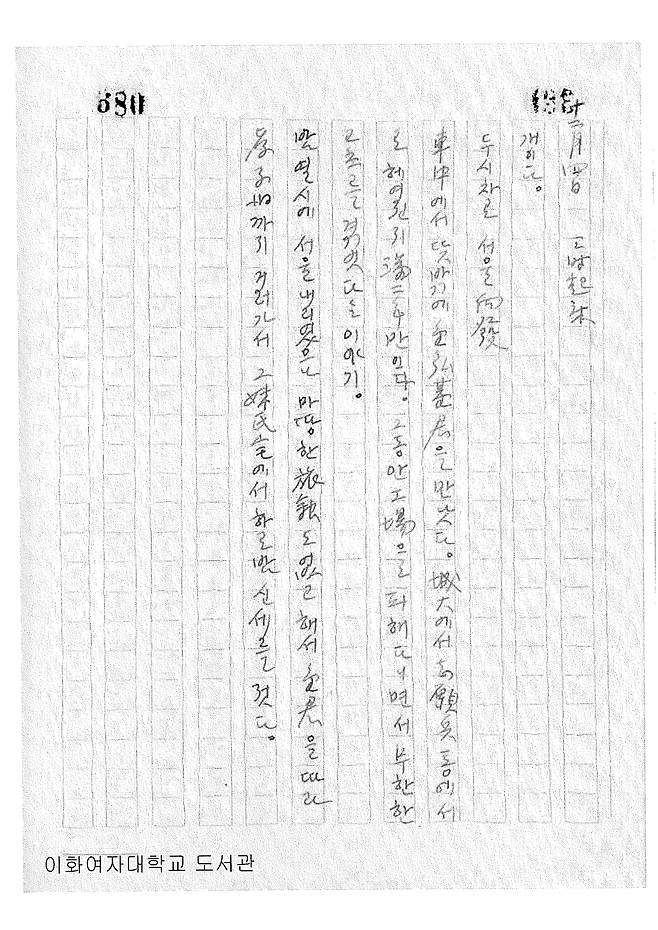 580
十二月 四日
개이다.
두시차로 서울 向發
車中에서 뜻밖에 金弘基君을 만났다. 城大에서 志願兵 통에서
로 헤여진지 滿二年만이다. 그동안 工場으로 피해 다니면서 무한한
고초를 겪었다는 이야기.
밤 열시에 서울 내리였으나 마땅한 旅館도 없고 해서 金君을 따라
孝子町까지 거러가서 그 妹氏宅에서 하로밤 신세를 젓다.
이화여자대학교 도서관